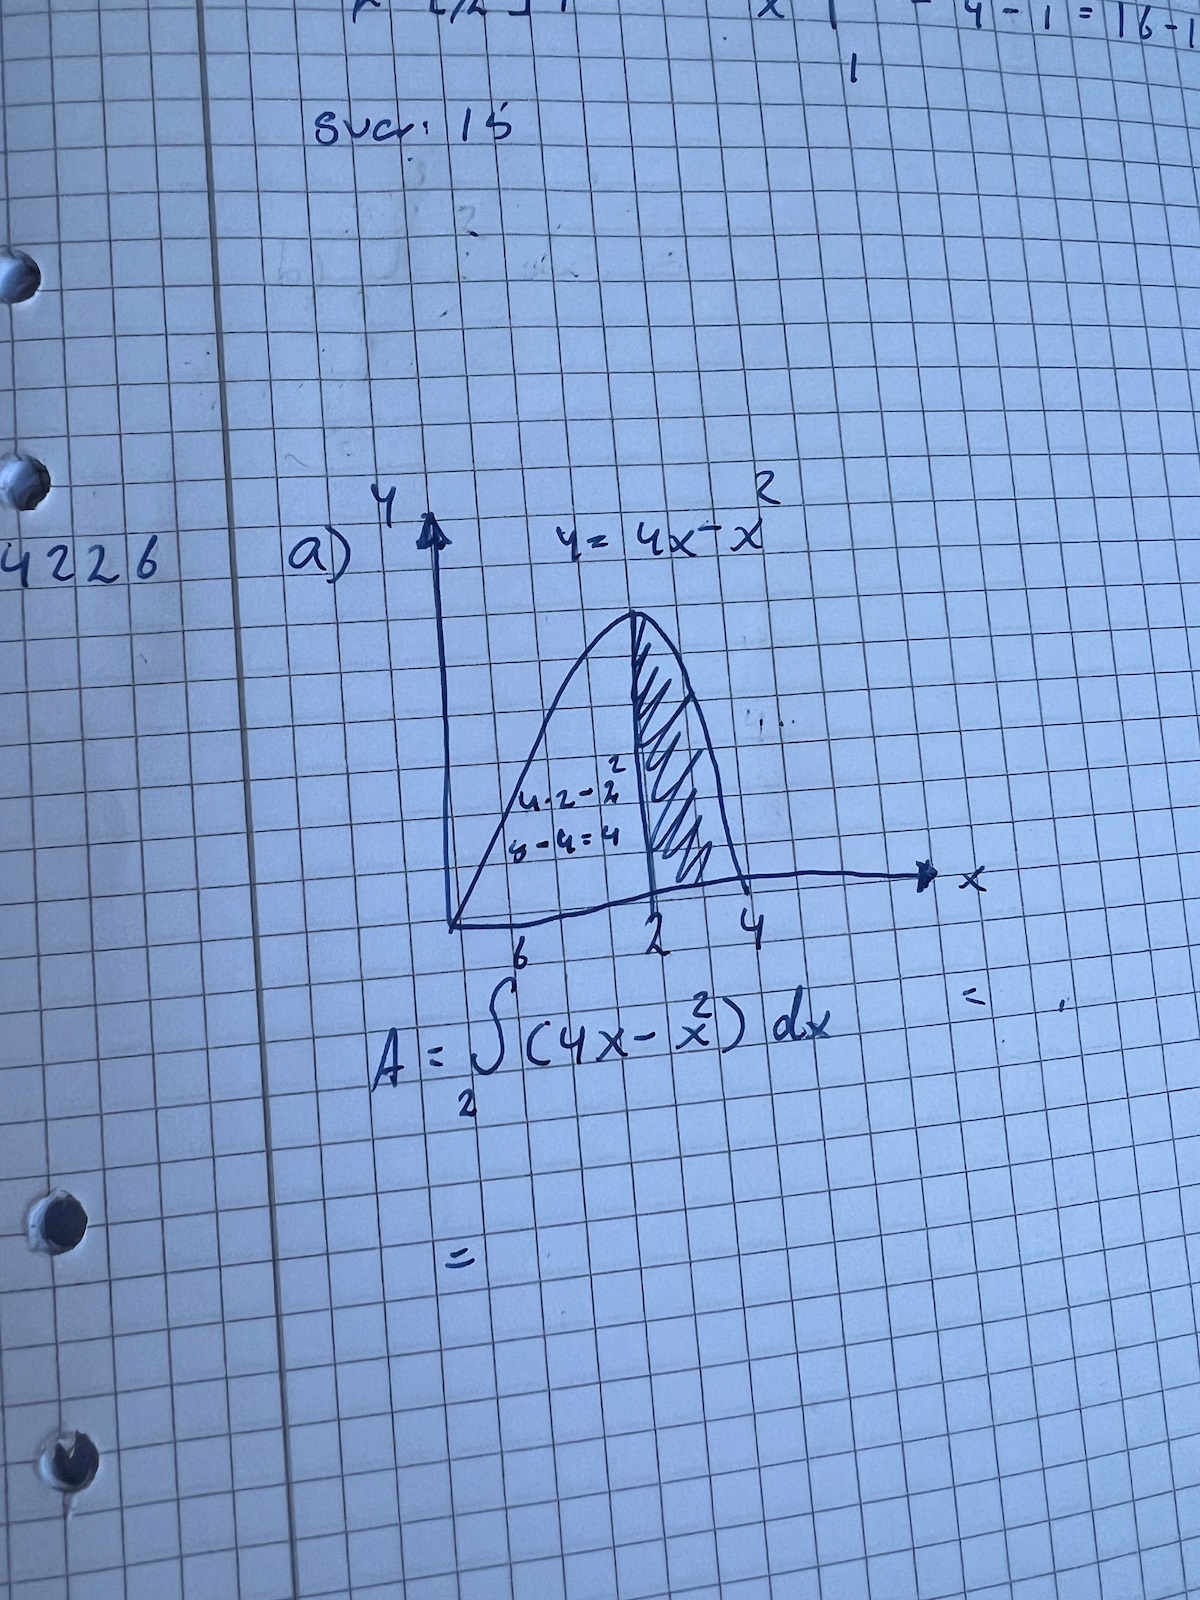 - 4 - 1 = 16 - 1
1
svar: 15
4226 a) y
y = 4x - x²
4·2 - 2²
8 - 4 = 4
x
2 4
6
A = ∫ (4x - x²) dx =
2
=